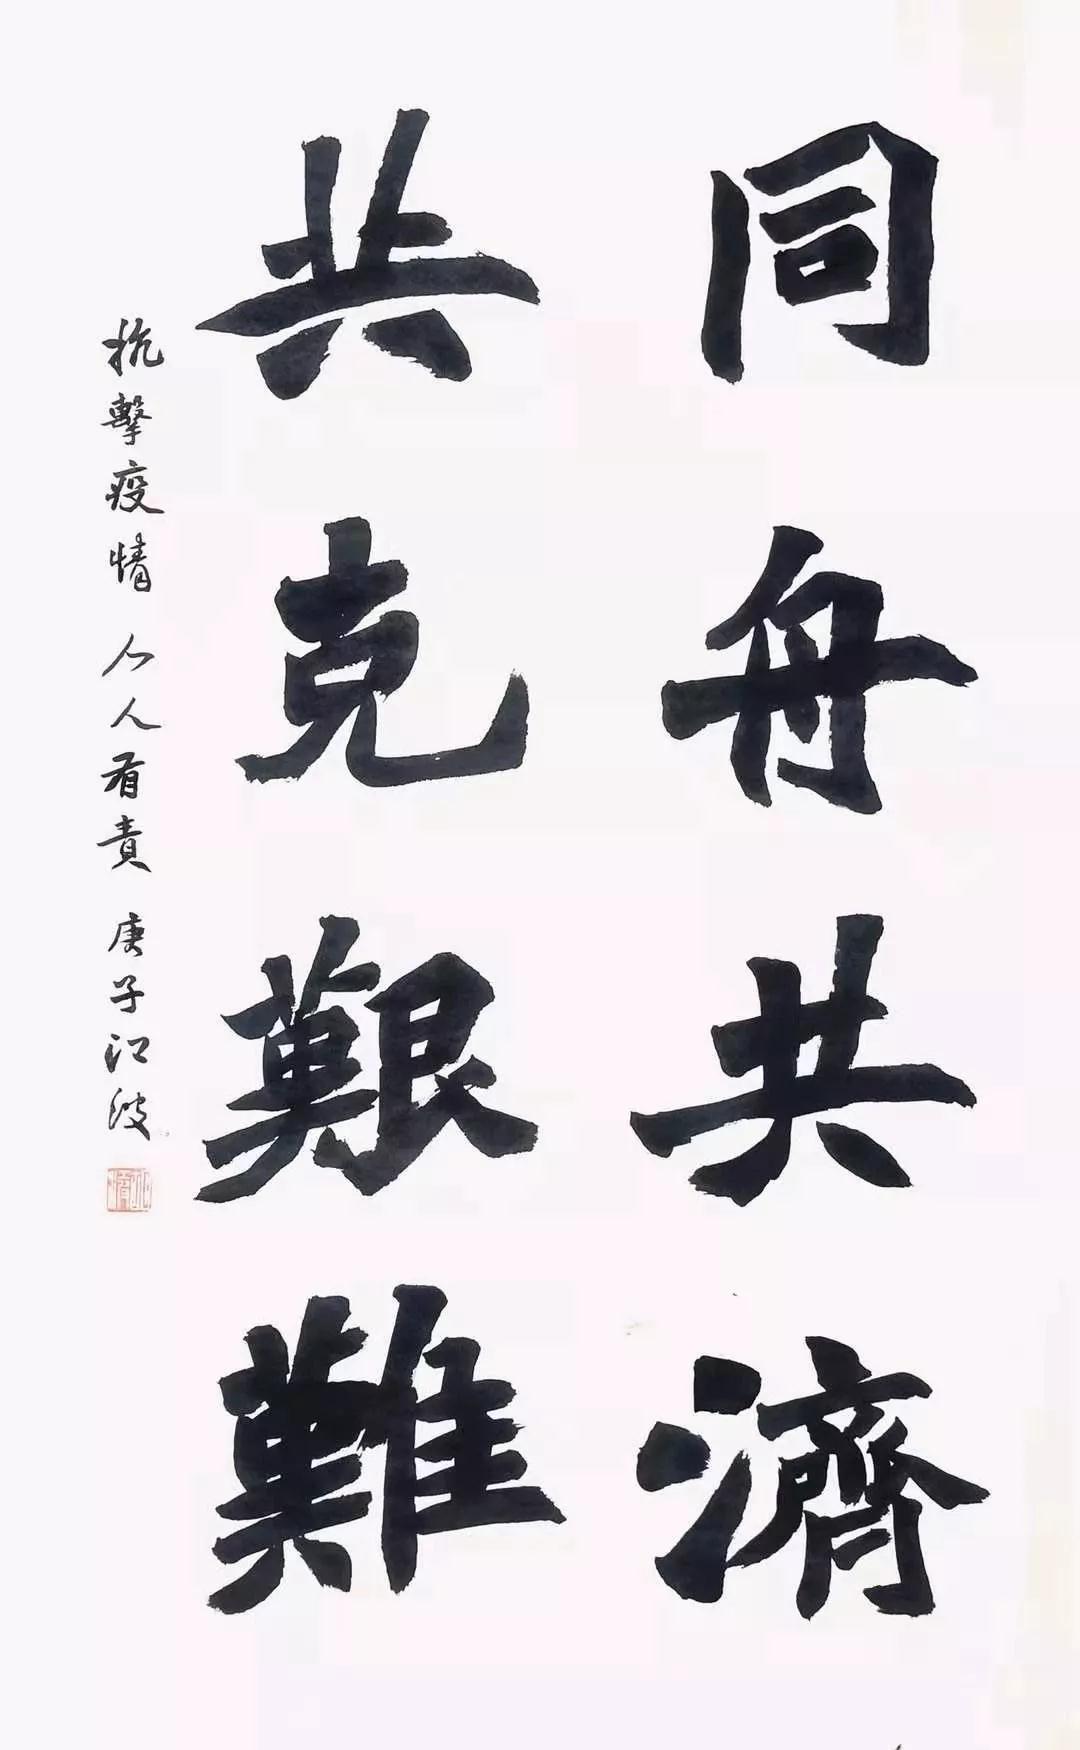 同舟共濟
共克艱難
抗擊疫情 人人有責 庚子江波